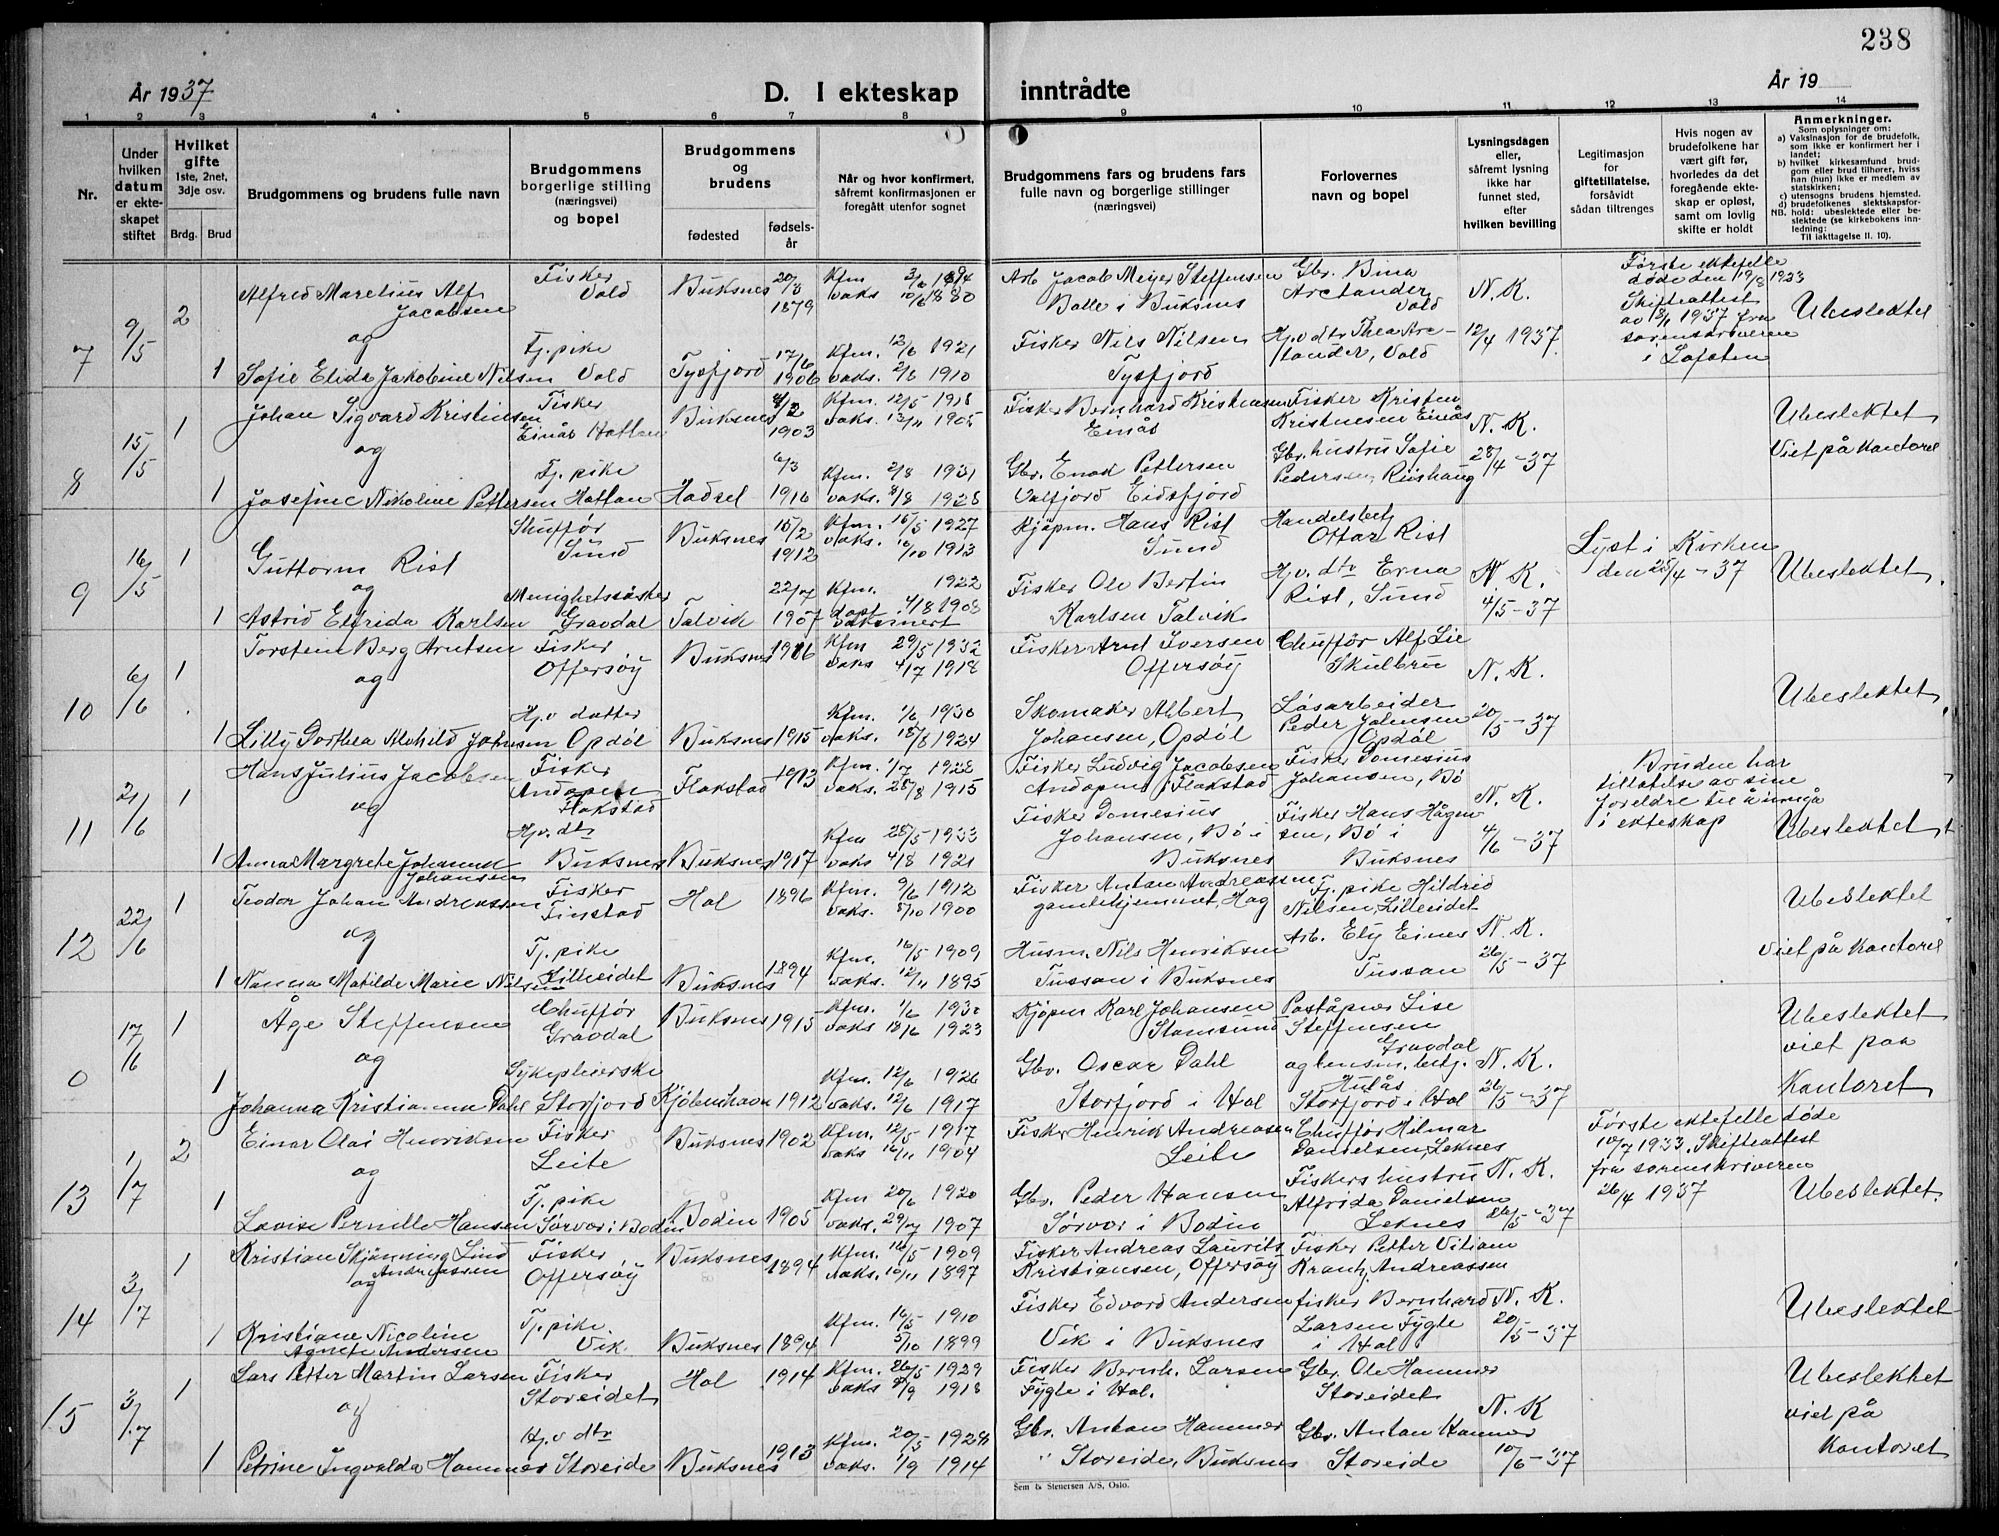 238
År 1937
D. I ekteskap inntrådte
År 19
1 2 3 4 5 6 7 8 9 10 11 12 13 14
Nr.
Under hvilken datum er ekteskapet stiftet
Hvilket gifte
1ste, 2net, 3dje osv.
Brdg. Brud
Brudgommens og brudens fulle navn
Brudgommens borgerlige stilling (næringsvei) og bopel
Brudgommens og brudens
fødested
fødselsår
Når og hvor konfirmert,
såfremt konfirmasjonen er foregått utenfor sognet
Brudgommens fars og brudens fars
fulle navn og borgerlige stillinger
(næringsvei)
Forlovernes navn og bopel
Lysningsdagen eller, såfremt lysning ikke har funnet sted, efter hvilken bevilling
Legitimasjon for giftetillatelse, forsåvidt sådan tiltrenges
Hvis nogen av brudefolkene har vært gift før, hvorledes da det foregående ekteskap er opløst, samt om lovlig skifte er holdt
Anmerkninger.
Som oplysninger om:
a) Vaksinasjon for de brudefolk, som ikke er konfirmert her i landet;
b) hvilket kirkesamfund brudgom eller brud tilhører, hviss han (hun) ikke er medlem av statskirken;
c) utensogns brudens hjemsted.
d) brudefolkenes slektskapsforhold: ubeslektede eller beslektede (se kirkebokens innledning:
NB. Til iakttagelse II. 10).
7 9/5 2 Alfred Marelius Alf Jacobsen Fisker Vold Buksnes 20/3 1879 Kfm 3/6 1894 vaks 10/6 1880 Arb. Jacob Meyer Steffensen Balle i Buksnes Gbr. Bina Arctander Vold N. K. Første ektefelle døde den 19/8 1923 Skifteattest av 18/1 1937 fra sorenskriveren i Lofoten Ubeslektet
og
1 Sofie Elida Jakobine Nilsen Tj. pike Vold Tysfjord 17/6 1906 Kfm. 12/6 1921 vaks. 2/6 1910 Fisker Nils Nilsen Tysfjord Hjv. dtr Thea Arctander, Vold 12/4 1937
8 15/5 1 Johan Sigvard Kristensen Fisker Einås Hattan Buksnes 4/2 1903 Kfm. 12/5 1918 vaks. 13/11 1905 Fisker Bernhard Kristensen Einås Fisker Kristen Kristensen Einås N. K. Ubeslektet Viet på kontoret
og
1 Josefine Nikoline Pettersen Tj. pike Hattan Hadsel 6/3 1916 Kfm. 2/8 1931 vaks. 8/8 1928 Gbr. Enok Pettersen Valfjord Eidsfjord Gbr. hustru Sofie Pedersen Riishaug 28/4-37
9 16/5 1 Guttorm Rist Shuffør Sund Buksnes 15/2 1912 Kfm. 15/5 1927 vaks. 16/10 1913 Kjøpm. Hans Rist Sund Handelsbetj Ottar Rist Lyst i Kirken den 25/4-37 Ubeslektet.
og
1 Astrid Elfrida Karlsen Menighetssøster Gravdal Talvik 22/7 1907 Kfm. 1922 døpt 4/8 1908 vaksinert Fisker Ole Bertin Karlsen Talvik Hjv. dtr Erna Rist, Sund N. K. 4/5-37
10 6/6 1 Torstein Berg Arntsen Fisker Offersøy Buksnes 1916 Kfm 29/5 1932 vaks 4/7 1918 Fisker Arnt Iversen Offersøy Chuffør Alf Lie Skulbru N. K. Ubeslektet
og
1 Lilly Dorthea Alvhild Johansen Hjv datter Opdøl Buksnes 1915 Kfm. 1/6 1930 vaks. 18/8 1924 Skomaker Albert Johansen, Opdøl Løsarbeider Peder Johansen Opdøl 20/5-37
11 21/6 1 Hans Julius Jacobsen Fisker Andopen Flakstad Flakstad 1913 Kfm. 1/7 1928 vaks. 28/8 1915 Fisker Ludvig Jacobsen Andopen i Flakstad Fisker Domesius Johansen, Bø N. K. Bruden har tillatelse av sine foreldre til å inngå i ekteskap Ubeslektet
og
1 Anna Margrete Johanne Johansen Hjv. dtr Buksnes Buksnes 1917 Kfm 28/5 1933 vaks 4/8 1921 Fisker Domesius Johansen, Bø i Buksnes Fisker Hans Hågensen, Bø i Buksnes 4/6-37
12 22/6 1 Teodor Johan Andreassen Fisker Finstad Hol 1896 Kfm. 9/6 1912 vaks. 8/10 1900 Fisker Anton Andreassen gamlehjemmet, Hag Tj. pike Hildrid Nilsen, Lilleeidet N. K. Ubeslektet viet på Kontoret
og
1 Nanna Matilde Marie Nilsen Tj. pike Lilleeidet Buksnes 1894 Kfm. 16/5 1909 vaks. 12/11 1895 Husm. Nils Henriksen Tussan i Buksnes Arb. Ely Eines Tussan 26/5-37
0 17/6 1 Åge Steffensen Chuffør Gravdal Buksnes 1915 Kfm. 1/6 1930 vaks 18/6 1923 Kjøpm Karl Johansen Stamsund Poståpner Lise Steffensen Gravdal Ubeslektet viet paa Kontoret
og
1 Johanna Kristianna Dahl Sykepleierske Storfjord Kjøbenhavn 1912 Kfm. 12/6 1926 vaks. 12/6 1917 Gbr. Oscar Dahl Storfjord i Hol og lensm. betj. Hulås Storfjord i Hol N. K. 26/5-37
13 1/7 2 Einar Olai Henriksen Fisker Leite Buksnes 1902 Kfm. 12/5 1917 vaks 16/11 1904 Fisker Henrik Andreasen Leite Chuffør Hilmar Danielsen, Leknes N. K. Første ektefelle døde 10/7 1933. Skifteattest fra sorenskriveren 26/4 1937 Ubeslektet.
og
1 Lovise Pernille Hansen Tj. pike Sørvær i Bodin Bodin 1905 Kfm 20/6 1920 vaks. 29/7 1907 Gbr. Peder Hansen Sørvær i Bodin Fiskers hustru Alfrida Danielsen Leknes 26/5-37
14 3/7 1 Kristian Skjønning Lind Andreassen Fisker Offersøy Buksnes 1894 Kfm. 16/5 1909 vaks. 10/11 1897 Fisker Andreas Laurits Kristiansen, Offersøy Fisker Petter Viliam Krantz Andreassen N. K. Ubeslektet
og
1 Kristiane Nicoline Agnete Andersen Tj. pike Vik Buksnes 1894 Kfm. 16/5 1910 5/10 1899 Fisker Edvard Andersen Vik i Buksnes fisker Bernhard Larsen Fygle i Hol 20/5-37
15 3/7 1 Lars Petter Martin Larsen Fisker Storeidet Hol 1914 Kfm. 26/5 1929 vaks 8/9 1918 Fisker Bernh. Larsen Fygle i Hol. Gbr. Ole Hammer Storeidet N. K Ubeslektet viet på Kontoret
og
1 Petrine Ingvalda Hammer Hjv dtr Storeide Buksnes 1913 Kfm. 20/5 1928 vaks. 1/9 1914 Gbr. Anton Hammer Storeide, Buksnes Gbr. Anton Hammer Storeide 10/6-37
Sem & Stenersen A/S, Oslo.